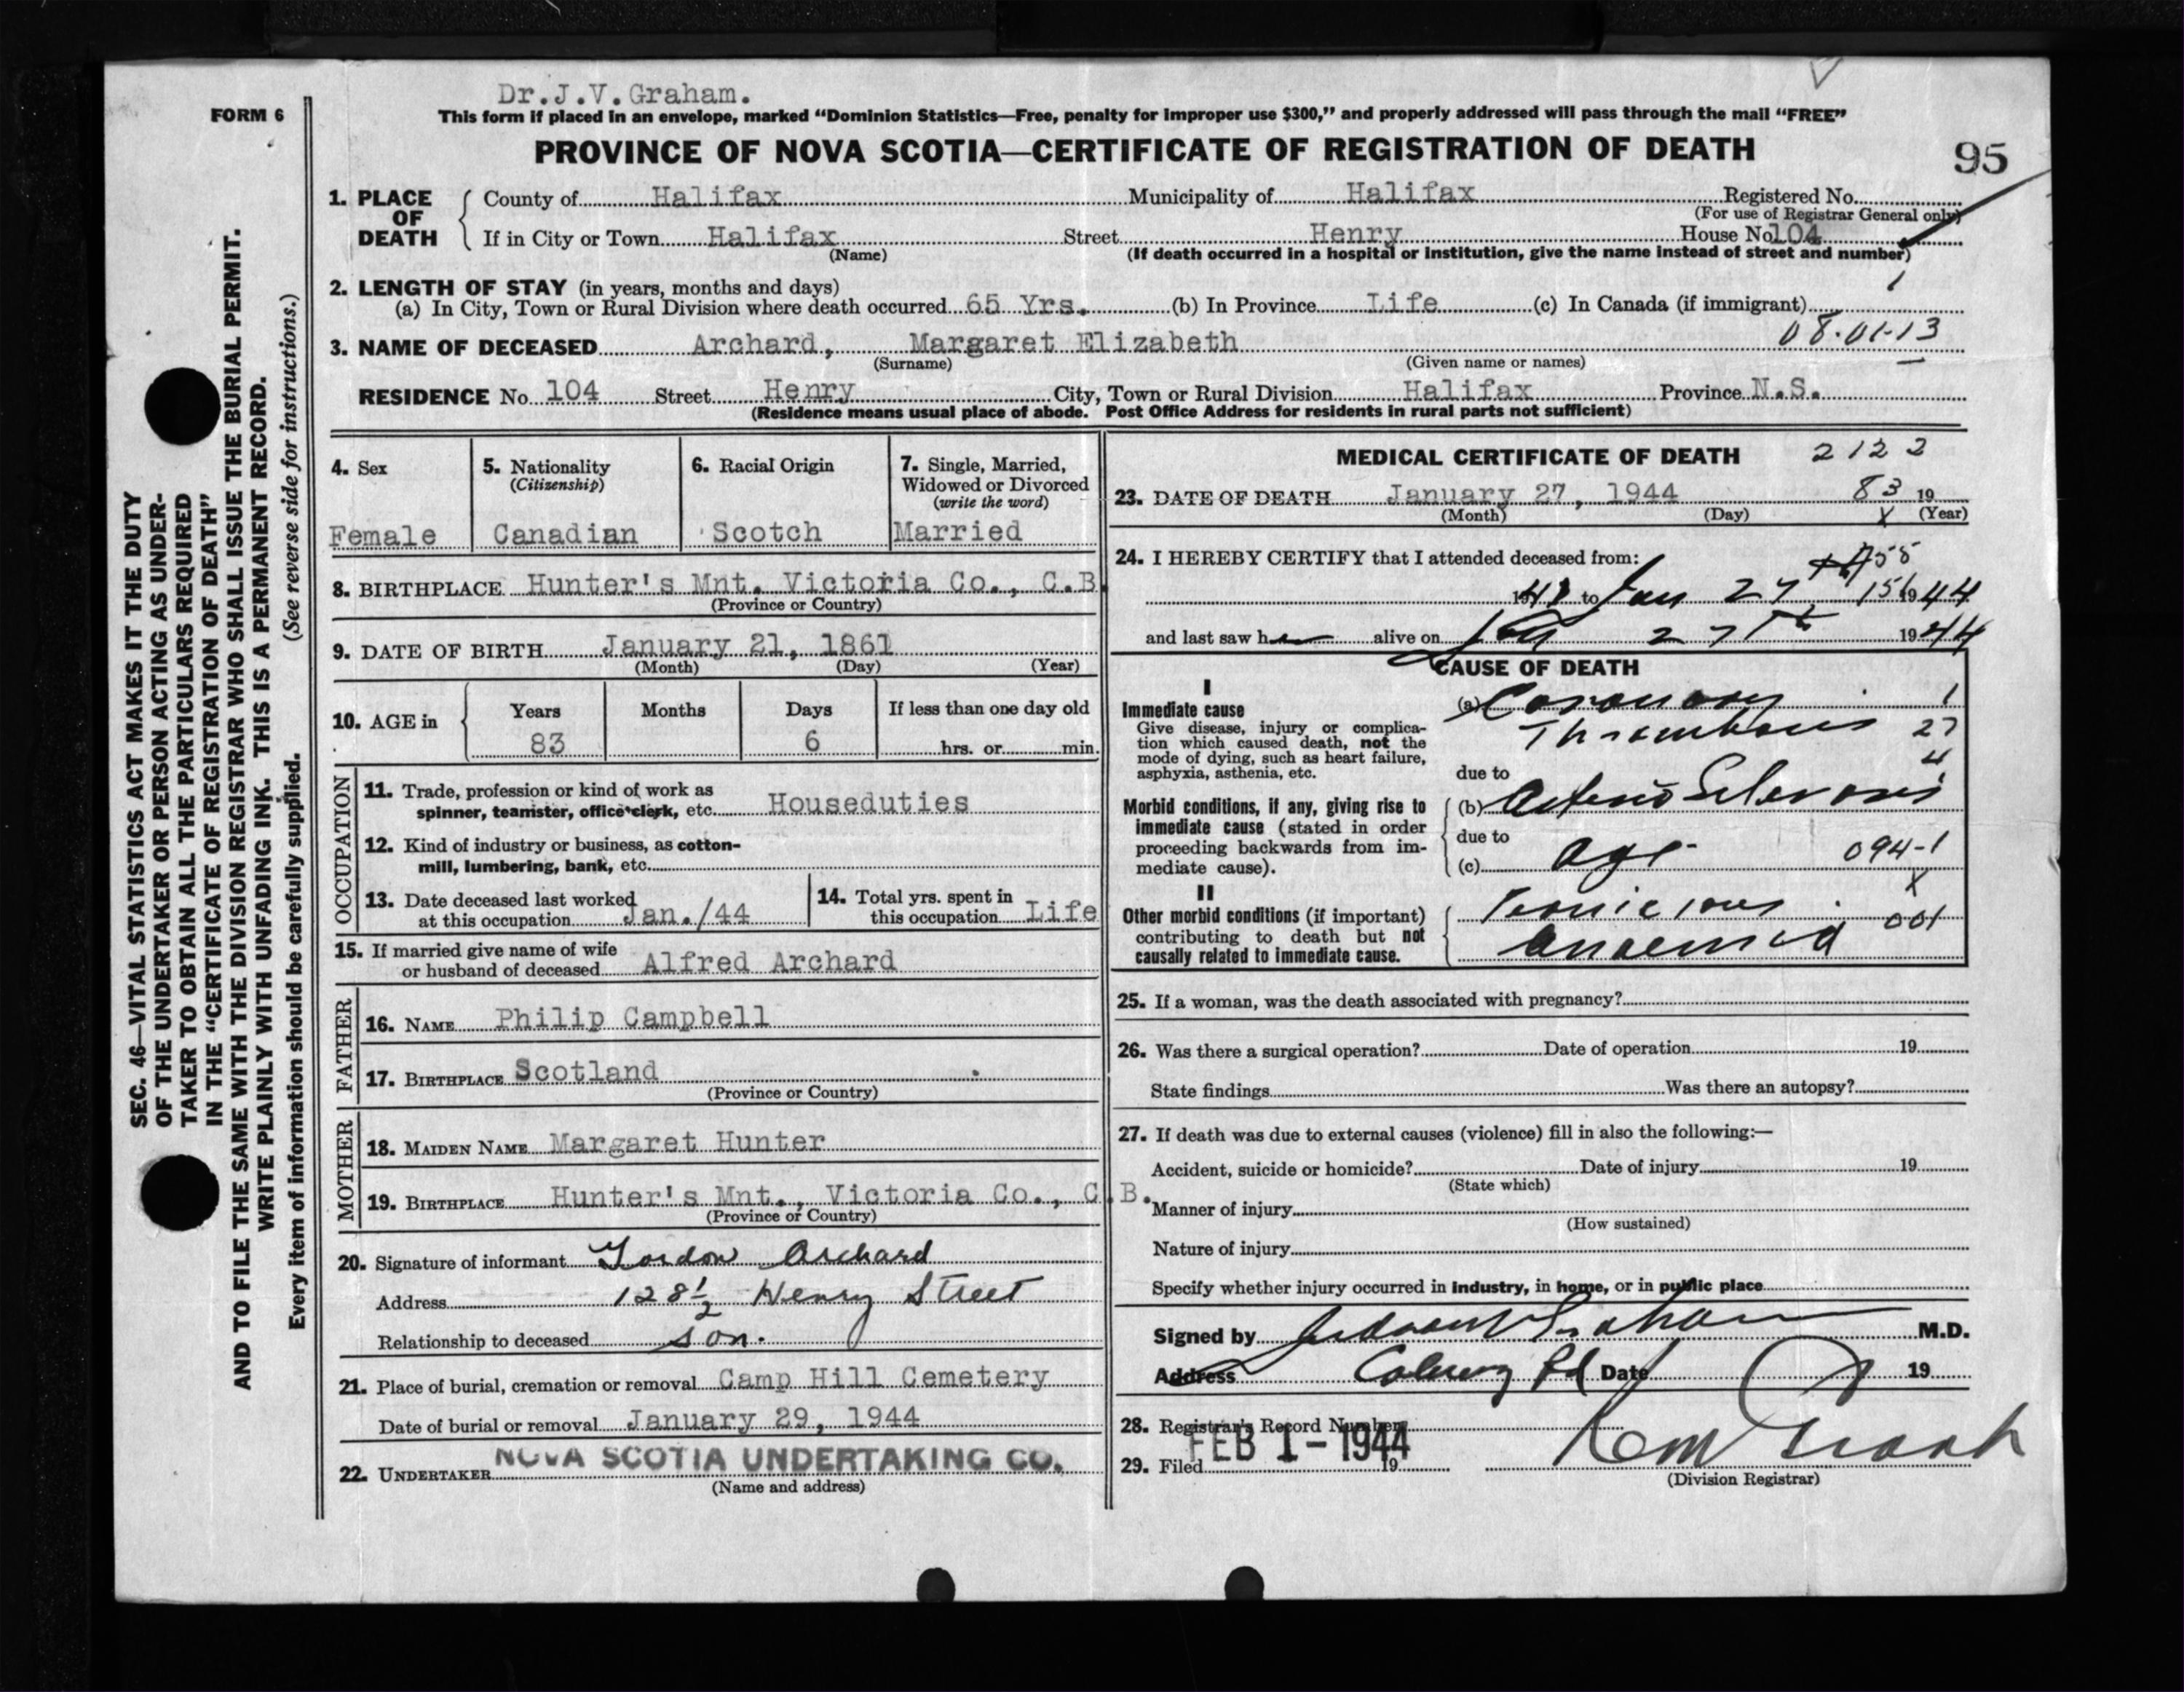 Dr.J.V.Graham.
FORM 6
This form if placed in an envelope, marked "Dominion Statistics—Free, penalty for improper use $300," and properly addressed will pass through the mail "FREE"
PROVINCE OF NOVA SCOTIA—CERTIFICATE OF REGISTRATION OF DEATH
95
1. PLACE OF DEATH
County of Halifax Municipality of Halifax Registered No.
(For use of Registrar General only)
If in City or Town Halifax Street Henry House No. 104
(Name) (If death occurred in a hospital or institution, give the name instead of street and number)
2. LENGTH OF STAY (in years, months and days)
1
(a) In City, Town or Rural Division where death occurred 65 Yrs. (b) In Province Life (c) In Canada (if immigrant)
08.01-13
3. NAME OF DECEASED Archard, Margaret Elizabeth
(Surname) (Given name or names)
RESIDENCE No. 104 Street Henry City, Town or Rural Division Halifax Province N.S.
(Residence means usual place of abode. Post Office Address for residents in rural parts not sufficient)
SEC. 46—VITAL STATISTICS ACT MAKES IT THE DUTY
OF THE UNDERTAKER OR PERSON ACTING AS UNDER-
TAKER TO OBTAIN ALL THE PARTICULARS REQUIRED
IN THE "CERTIFICATE OF REGISTRATION OF DEATH"
AND TO FILE THE SAME WITH THE DIVISION REGISTRAR WHO SHALL ISSUE THE BURIAL PERMIT.
WRITE PLAINLY WITH UNFADING INK. THIS IS A PERMANENT RECORD.
Every item of information should be carefully supplied. (See reverse side for instructions.)
4. Sex
Female
5. Nationality
(Citizenship)
Canadian
6. Racial Origin
Scotch
7. Single, Married,
Widowed or Divorced
(write the word)
Married
8. BIRTHPLACE Hunter's Mnt. Victoria Co., C.B.
(Province or Country)
9. DATE OF BIRTH January 21, 1861
(Month) (Day) (Year)
10. AGE in
Years Months Days If less than one day old
83 6 hrs. or min.
OCCUPATION
11. Trade, profession or kind of work as
spinner, teamster, office clerk, etc. Houseduties
12. Kind of industry or business, as cotton-
mill, lumbering, bank, etc.
13. Date deceased last worked
at this occupation Jan./44
14. Total yrs. spent in
this occupation Life
15. If married give name of wife
or husband of deceased Alfred Archard
FATHER
16. NAME Philip Campbell
17. BIRTHPLACE Scotland
(Province or Country)
MOTHER
18. MAIDEN NAME Margaret Hunter
19. BIRTHPLACE Hunter's Mnt., Victoria Co., C.B.
(Province or Country)
20. Signature of informant Gordon Archard
Address 128½ Henry Street
Relationship to deceased son.
21. Place of burial, cremation or removal Camp Hill Cemetery
Date of burial or removal January 29, 1944
22. UNDERTAKER NOVA SCOTIA UNDERTAKING CO.
(Name and address)
MEDICAL CERTIFICATE OF DEATH 2122
23. DATE OF DEATH January 27, 1944 83 19
(Month) (Day) X (Year)
24. I HEREBY CERTIFY that I attended deceased from:
1941 to Jan 27 1944
and last saw her alive on Jan 27th 1944
CAUSE OF DEATH
I
Immediate cause
Give disease, injury or complica-
tion which caused death, not the
mode of dying, such as heart failure,
asphyxia, asthenia, etc.
(a) Coronary 1
Thrombosis 27
due to
Morbid conditions, if any, giving rise to
immediate cause (stated in order
proceeding backwards from im-
mediate cause).
(b) Arterio Sclerosis
due to
(c) Age 094-1
X
II
Other morbid conditions (if important)
contributing to death but not
causally related to immediate cause.
Pernicious
Anaemia 001
25. If a woman, was the death associated with pregnancy?
26. Was there a surgical operation? Date of operation 19
State findings Was there an autopsy?
27. If death was due to external causes (violence) fill in also the following:—
Accident, suicide or homicide? Date of injury 19
(State which)
Manner of injury
(How sustained)
Nature of injury
Specify whether injury occurred in industry, in home, or in public place
Signed by Graham M.D.
Address Date 19
28. Registrar's Record Number
29. Filed FEB 1-1944 19
(Division Registrar)